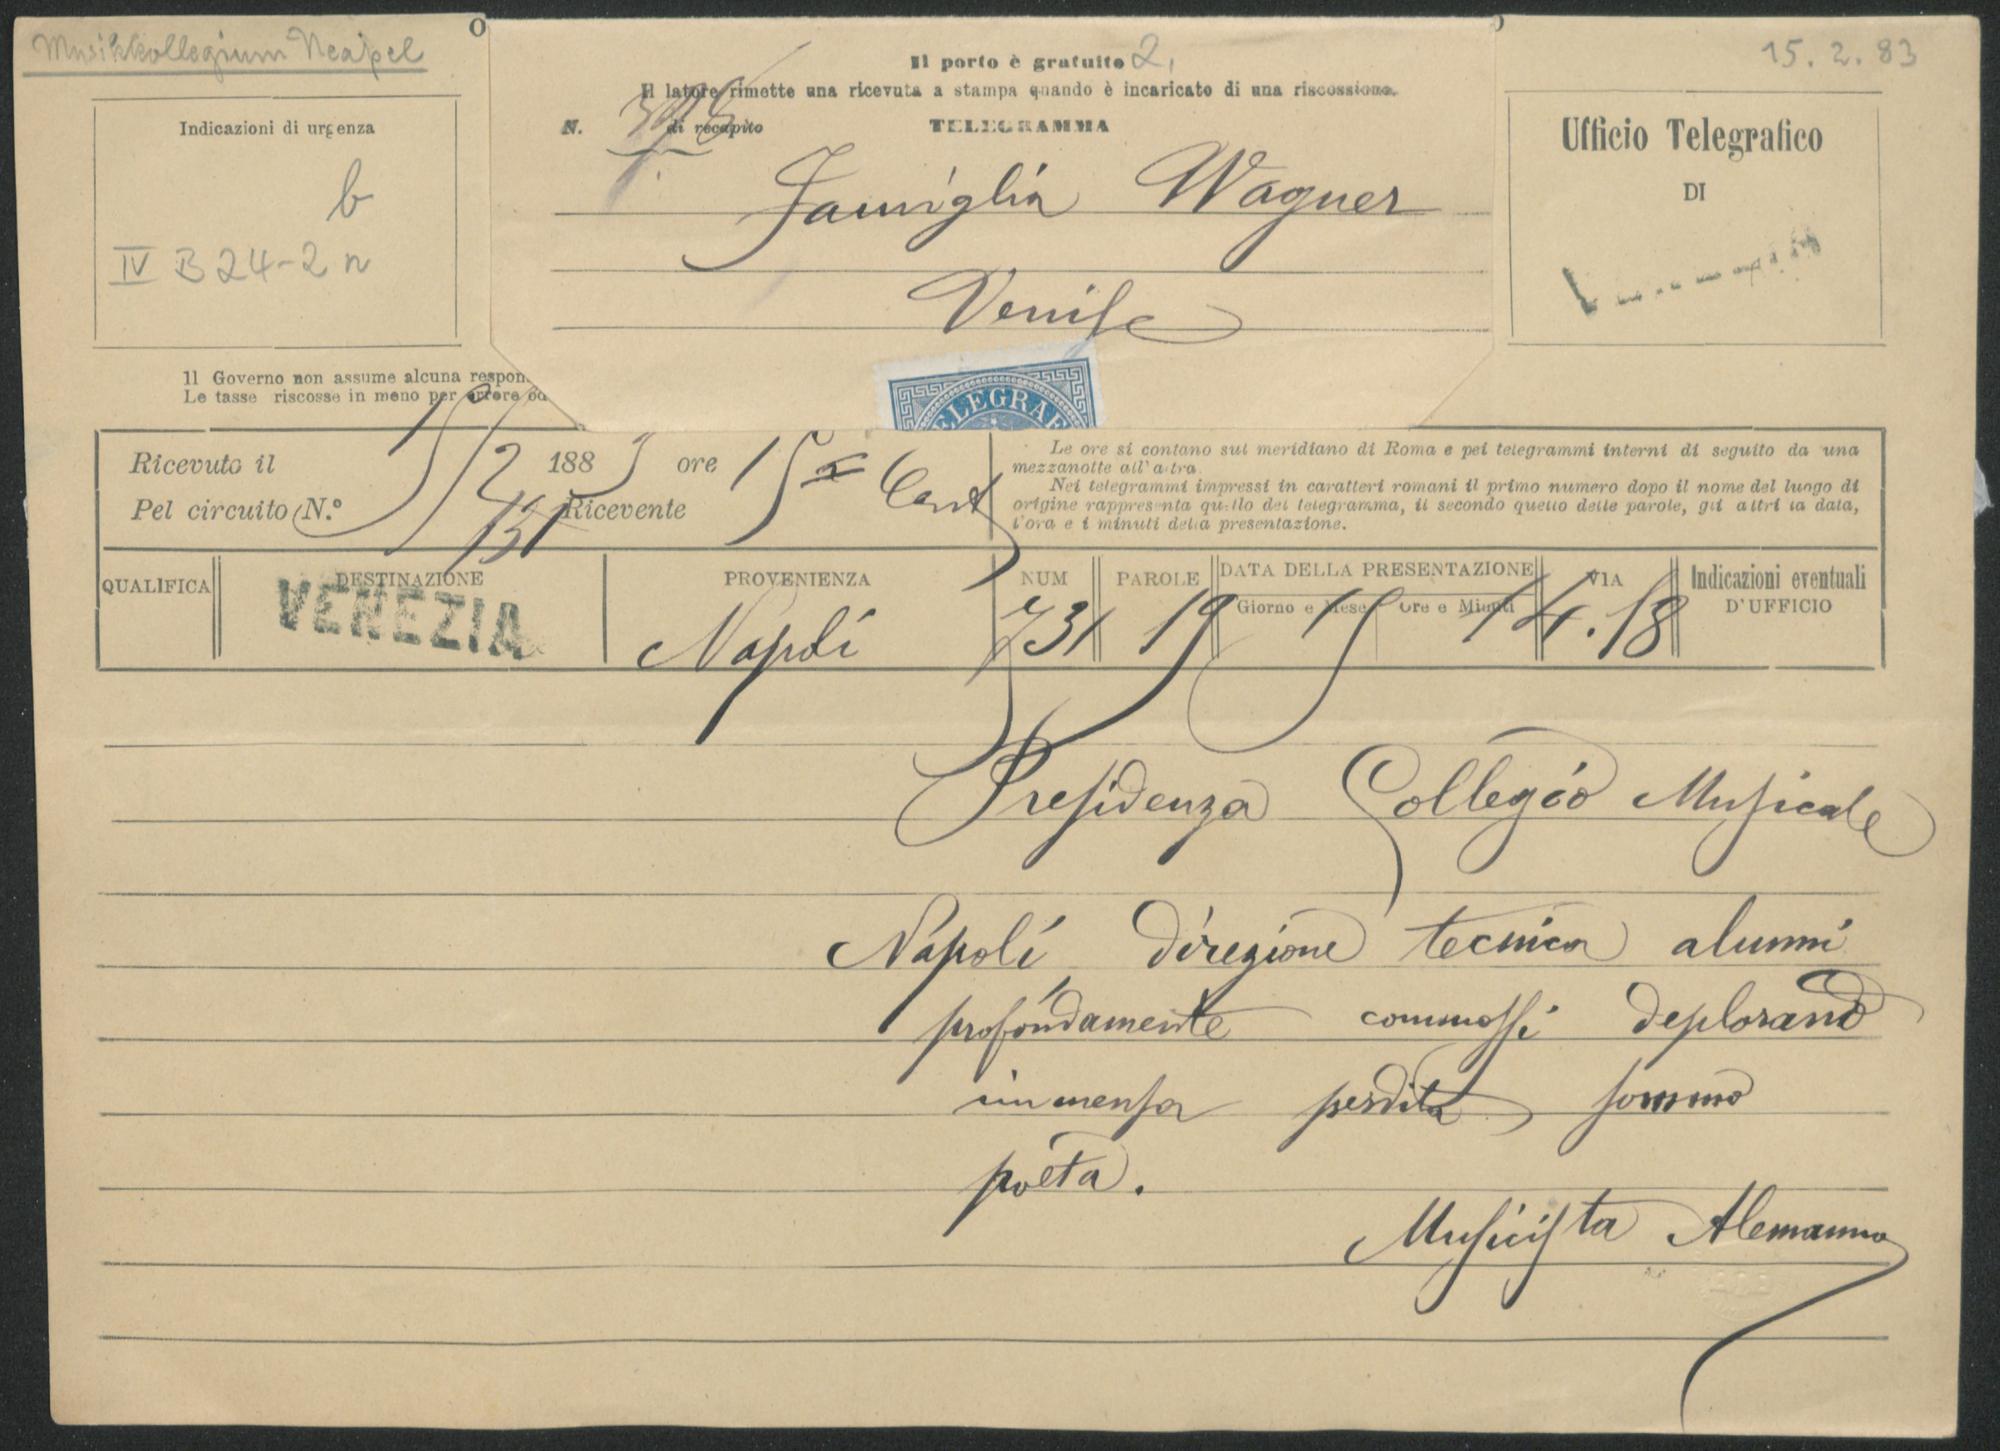 Musikkollegium Neapel
15. 2. 83
Il porto è gratuito 2,
Il latore rimette una ricevuta a stampa quando è incaricato di una riscossione.
N. di recapito TELEGRAMMA
Famiglia Wagner
Venise
Indicazioni di urgenza
b
IV B 24-2 n
Ufficio Telegrafico
DI
VENEZIA
Il Governo non assume alcuna respon
Le tasse riscosse in meno per errore od
TELEGRAF
Ricevuto il 15/2 1883 ore 15
Pel circuito N.º 131 Ricevente
Le ore si contano sul meridiano di Roma e pei telegrammi interni di seguito da una
mezzanotte all'altra.
Nei telegrammi impressi in caratteri romani il primo numero dopo il nome del luogo di
origine rappresenta quello del telegramma, il secondo quello delle parole, gli altri la data,
l'ora e i minuti della presentazione.
QUALIFICA DESTINAZIONE PROVENIENZA NUM PAROLE DATA DELLA PRESENTAZIONE VIA Indicazioni eventuali
Giorno e Mese Ore e Minuti D'UFFICIO
VENEZIA Napoli 731 19 15 14.18
Presidenza Collegio Musicale
Napoli direzione tecnica alunni
profondamente commossi deplorano
immensa perdita sommo
poeta.
Musicista Alemanno